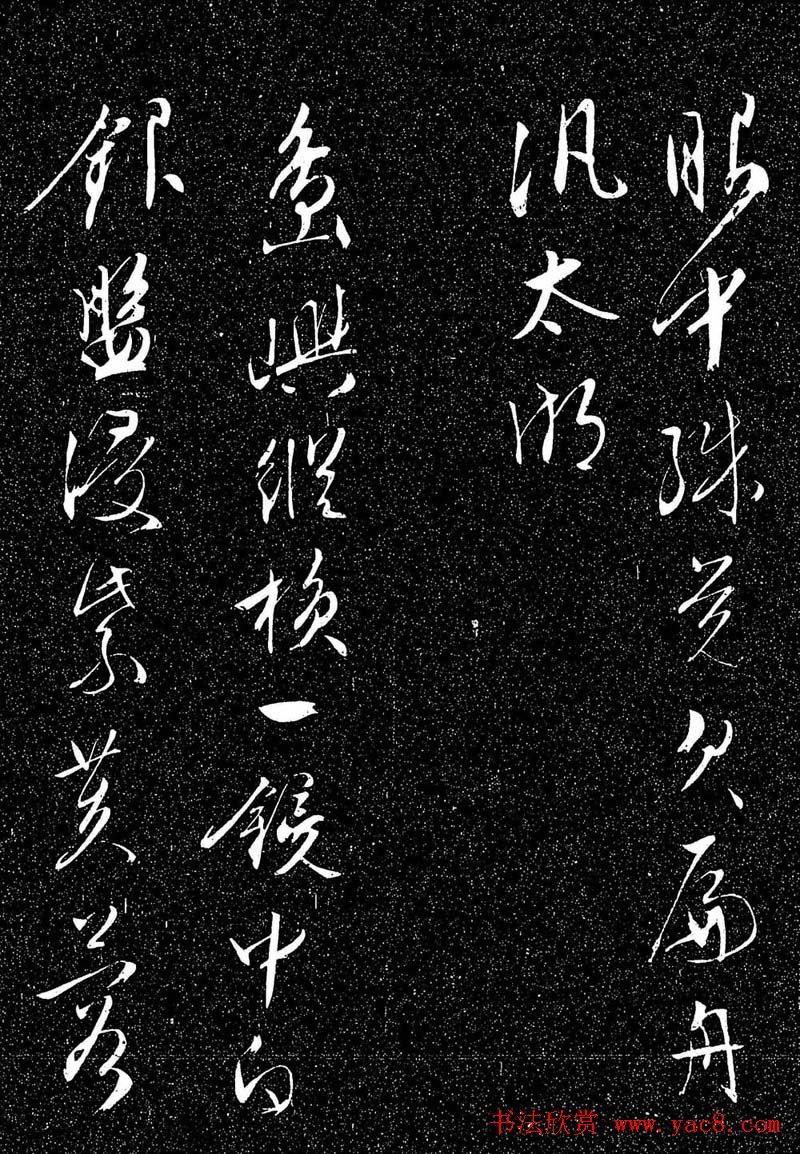 眼中殊覺欠扁舟
汎太湖
島嶼縱橫一鏡中白
銀盤浸紫芙蓉
书法欣赏 www.yac8.com